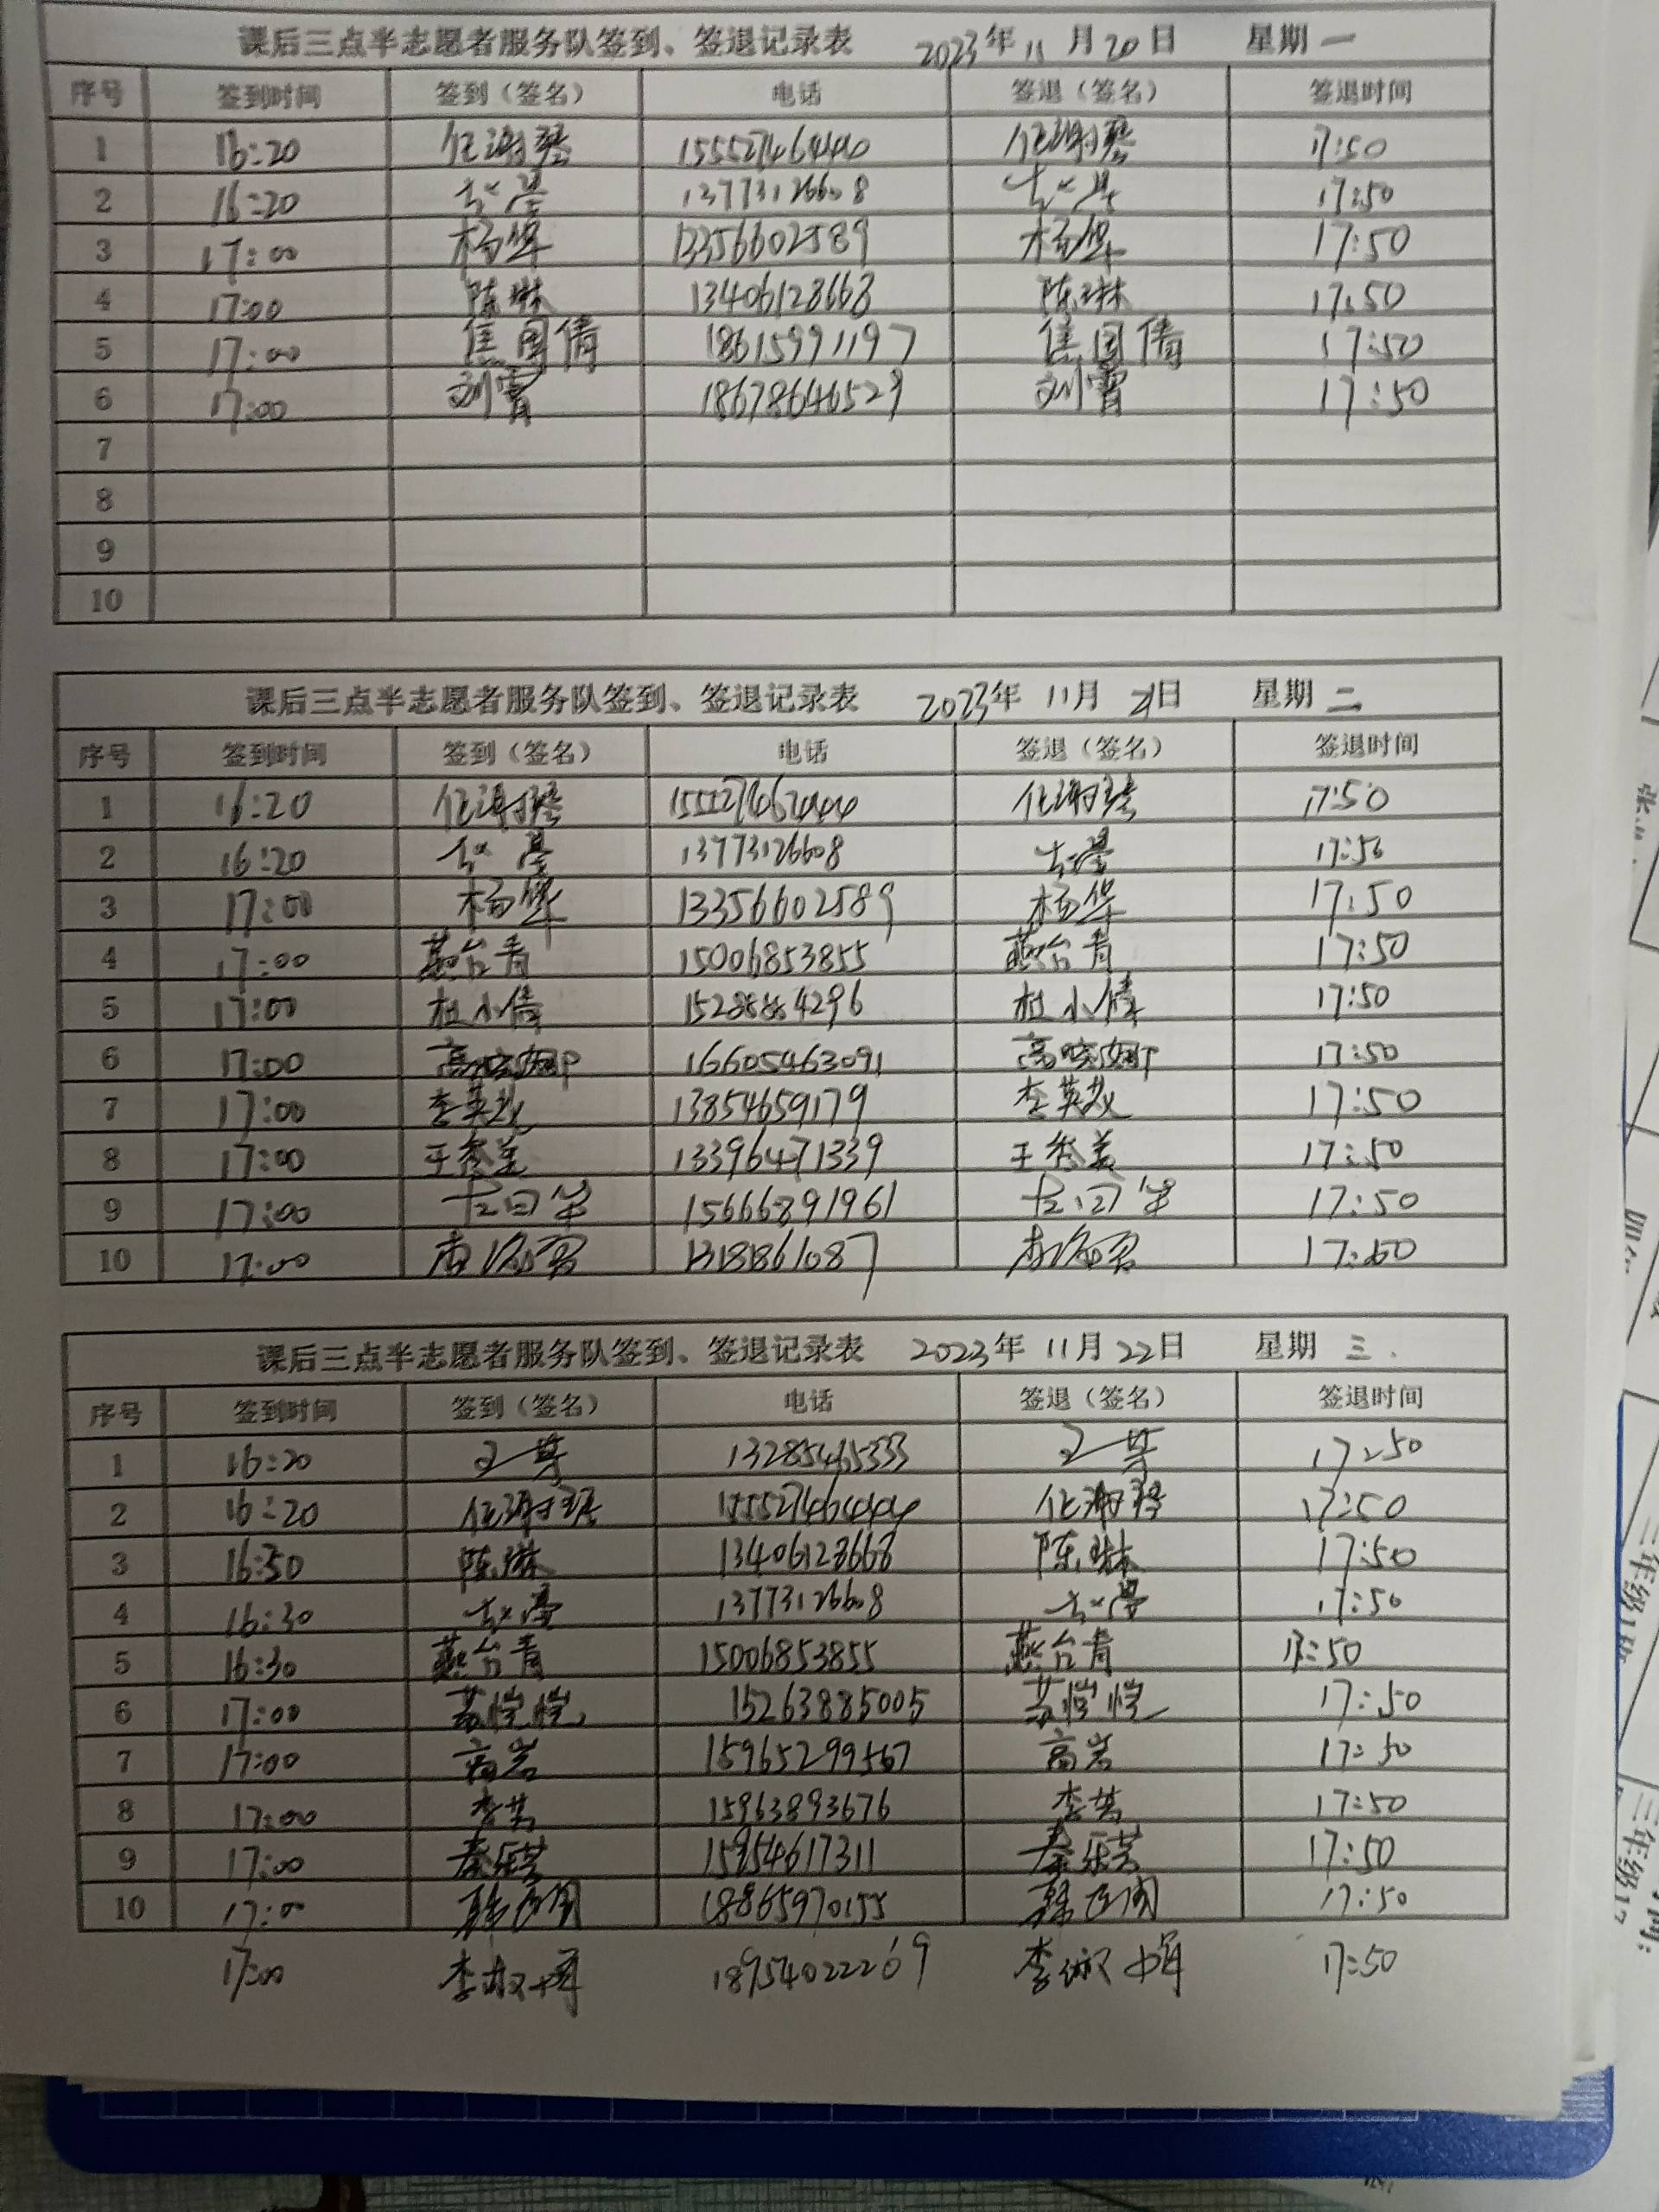 课后三点半志愿者服务队签到、签退记录表 2023年11月20日 星期一
序号 签到时间 签到（签名） 电话 签退（签名） 签退时间
1 16:20 17:50
2 16:20 13773126608 17:50
3 17:00 杨华 13356602589 杨华 17:50
4 17:00 陈琳 13406128668 陈琳 17:50
5 17:00 焦国倩 18615991197 焦国倩 17:50
6 17:00 刘霄 18678646529 刘霄 17:50
7
8
9
10
课后三点半志愿者服务队签到、签退记录表 2023年11月21日 星期二
序号 签到时间 签到（签名） 电话 签退（签名） 签退时间
1 16:20 17:50
2 16:20 13773126608 17:50
3 17:00 杨华 13356602589 杨华 17:50
4 17:00 燕台青 15006853855 燕台青 17:50
5 17:00 杜小倩 杜小倩 17:50
6 17:00 16605463091 17:50
7 17:00 13854659179 17:50
8 17:00 王秀美 13396471339 王秀美 17:50
9 17:00 15666891961 17:50
10 17:00 17:50
课后三点半志愿者服务队签到、签退记录表 2023年11月22日 星期三
序号 签到时间 签到（签名） 电话 签退（签名） 签退时间
1 16:20 13285465333 17:50
2 16:20 17:50
3 16:30 陈琳 13406128668 陈琳 17:50
4 16:30 13773126608 17:50
5 16:30 燕台青 15006853855 燕台青 17:50
6 17:00 苏恺恺 15263885005 苏恺恺 17:50
7 17:00 高岩 15965299567 高岩 17:50
8 17:00 15963893676 17:50
9 17:00 秦乐芸 15954617311 秦乐芸 17:50
10 17:00 18865970155 17:50
17:00 18954022269 17:50